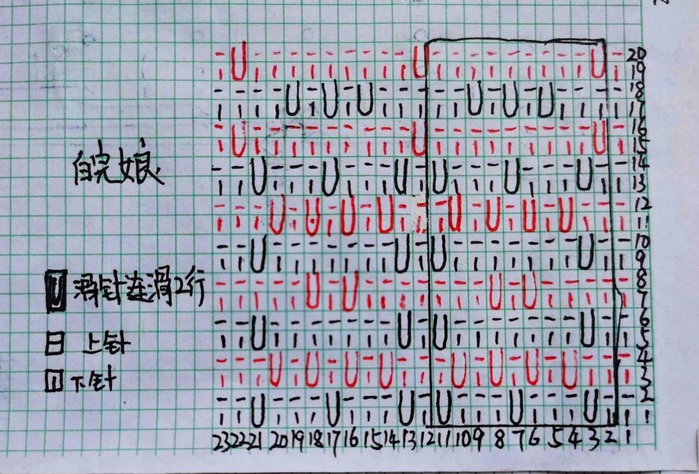 20
19
18
17
16
15
14
13
12
11
10
9
8
7
6
5
4
3
2
1
滑针连滑2行
上针
下针
23 22 21 20 19 18 17 16 15 14 13 12 11 10 9 8 7 6 5 4 3 2 1